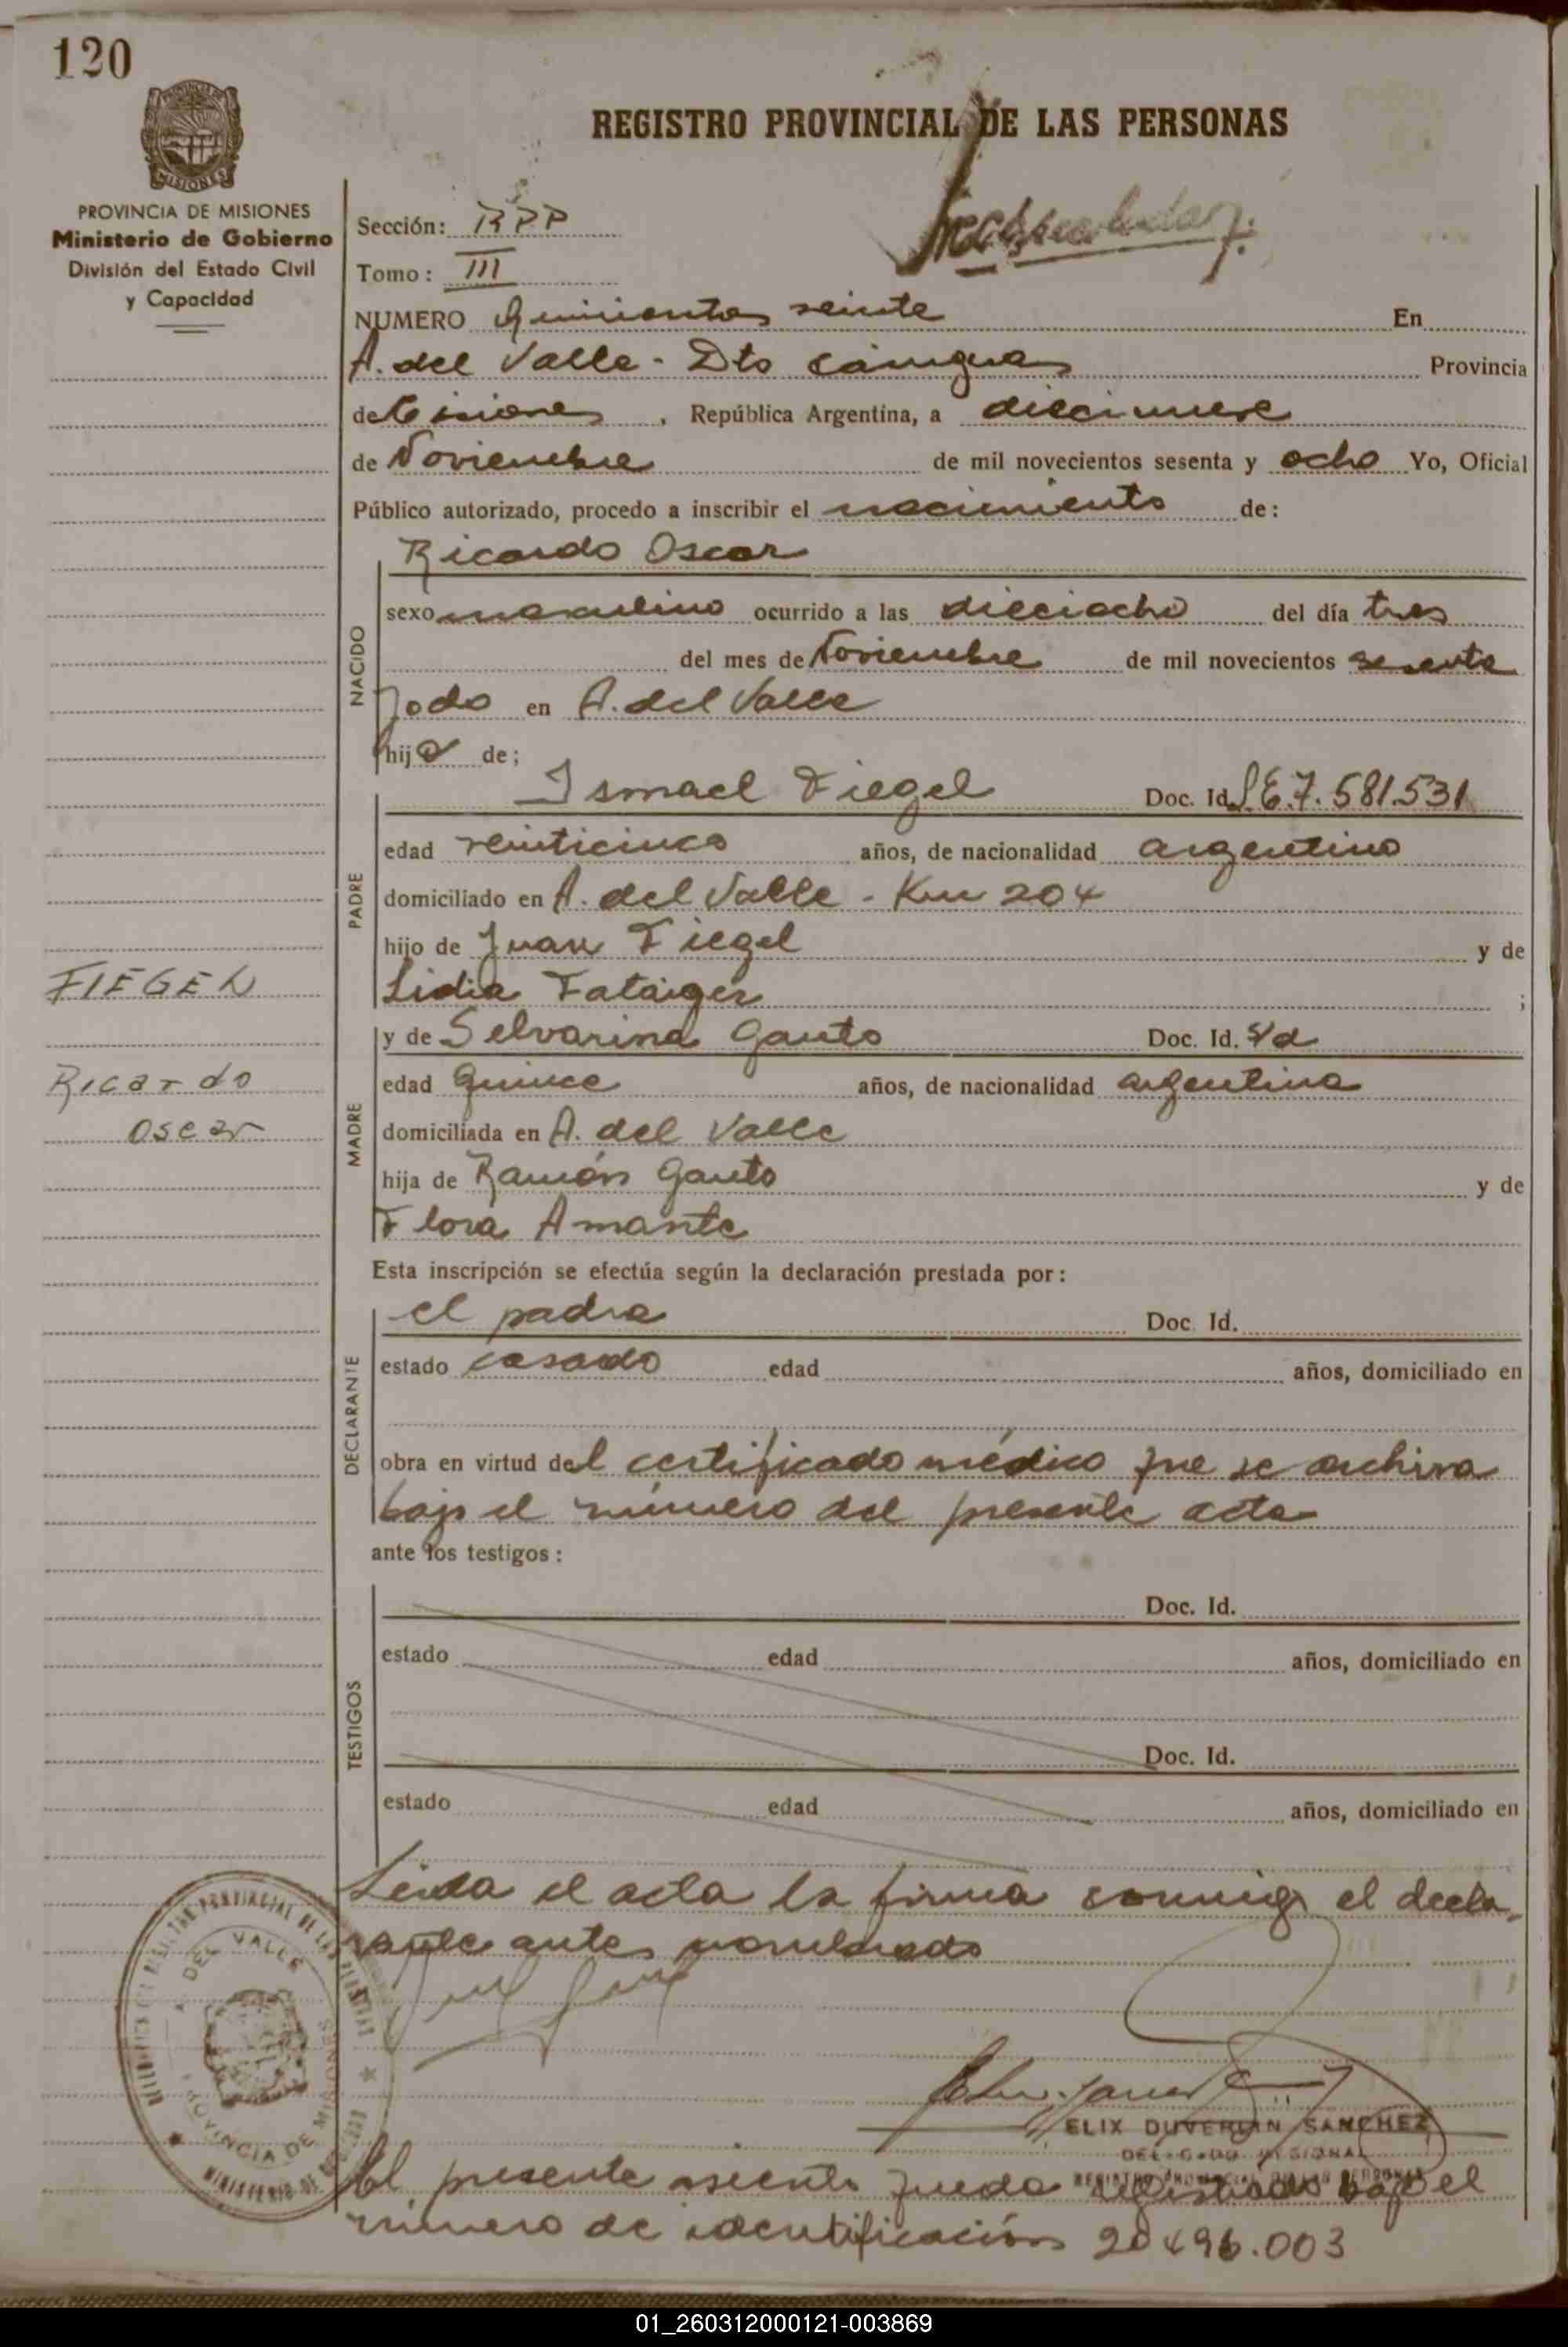 120
REGISTRO PROVINCIAL DE LAS PERSONAS
PROVINCIA DE MISIONES
Ministerio de Gobierno
División del Estado Civil
y Capacidad
Sección: RPP
Tomo: III
NUMERO Quinientos veinte En
A. del Valle - Dto Cainguas Provincia
de Misiones, República Argentina, a diecinueve
de Noviembre de mil novecientos sesenta y ocho Yo, Oficial
Público autorizado, procedo a inscribir el nacimiento de:
Ricardo Oscar
NACIDO
sexo masculino ocurrido a las dieciocho del día tres
del mes de Noviembre de mil novecientos sesenta
y ocho en A. del Valle
hijo de;
Ismael Fiegel Doc. Id. LE 7.581.531
PADRE
edad veinticinco años, de nacionalidad argentino
domiciliado en A. del Valle - Km 204
hijo de Juan Fiegel y de
Lidia Fataiger ;
FIEGEL
Ricardo
Oscar
MADRE
y de Selvarina Gauto Doc. Id. S/d
edad Quince años, de nacionalidad argentina
domiciliada en A. del Valle
hija de Ramón Gauto y de
Flora Amante
Esta inscripción se efectúa según la declaración prestada por:
DECLARANTE
el padre Doc. Id.
estado casado edad años, domiciliado en
obra en virtud del certificado médico que se archiva
bajo el número del presente acta
ante los testigos:
TESTIGOS
Doc. Id.
estado edad años, domiciliado en
Doc. Id.
estado edad años, domiciliado en
Leida el acta la firma conmigo el decla-
rante antes nombrado
DEL VALLE
PROVINCIA DE MISIONES
ELIX DUVERLIN SANCHEZ
REGISTRO PROVINCIAL DE LAS PERSONAS
El presente asiento queda registrado bajo el
número de identificación 20.496.003
01_260312000121-003869